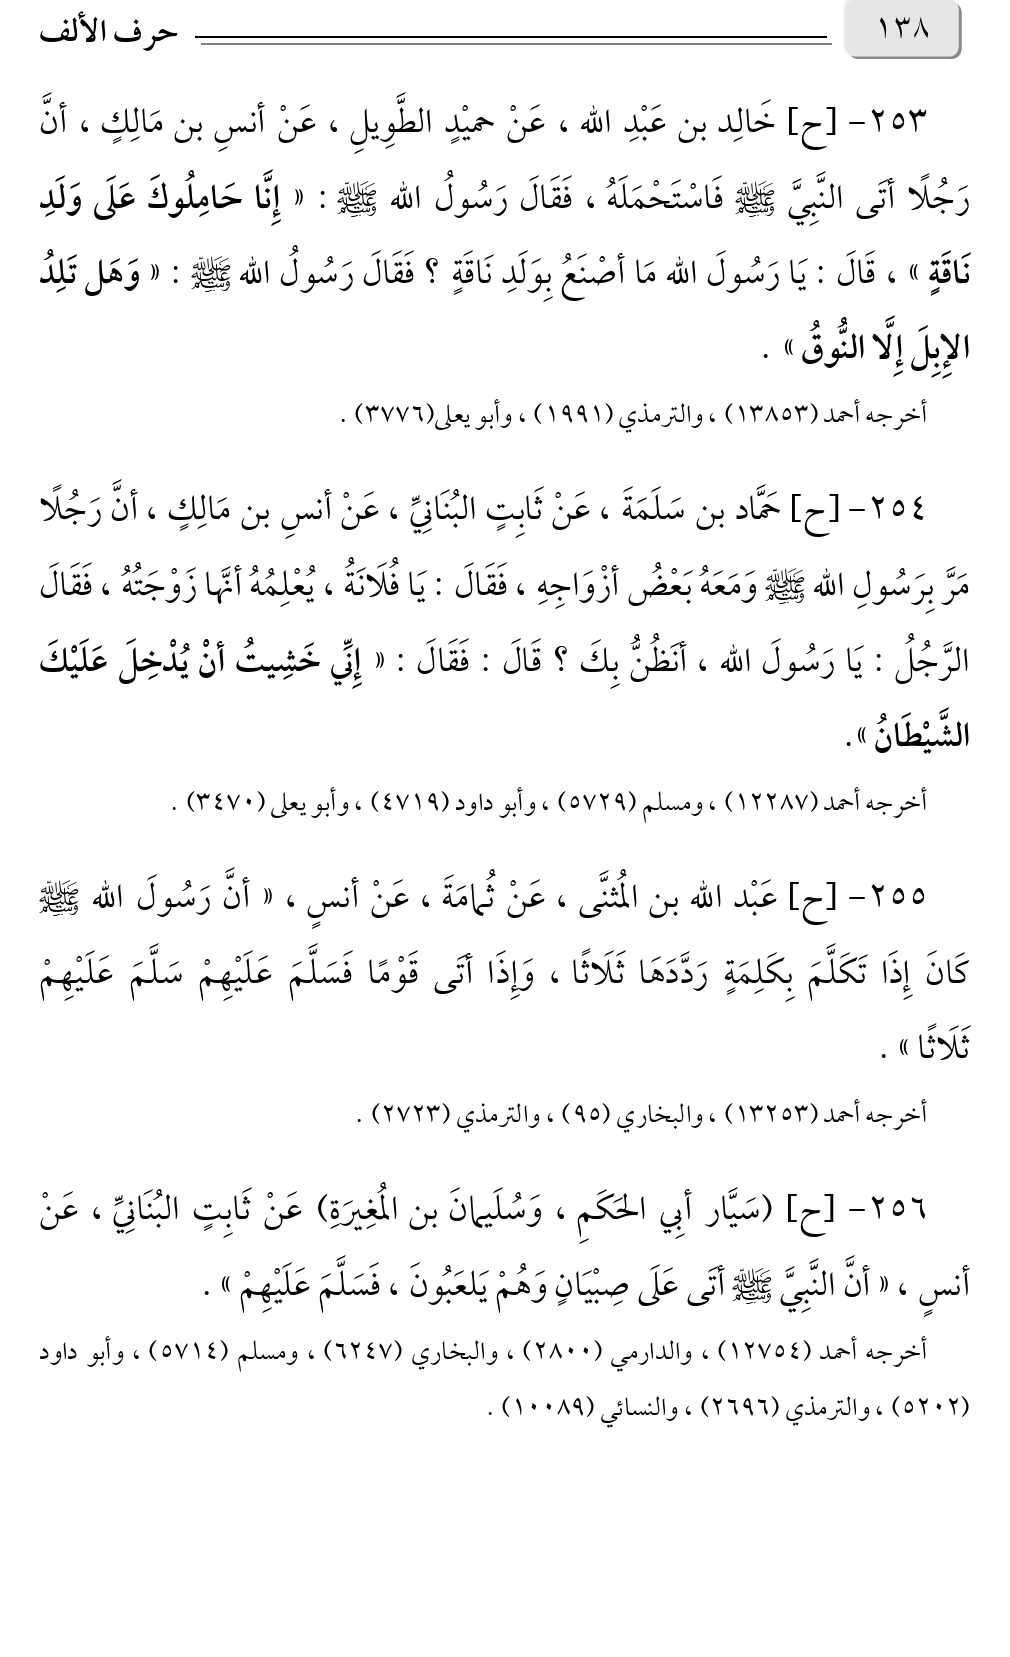 ١٣٨
حرف الألف
٢٥٣- [ح] خَالِد بن عَبْدِ الله ، عَنْ حميْدٍ الطَّوِيلِ ، عَنْ أنسِ بن مَالِكٍ ، أنَّ
رَجُلًا أتَى النَّبِيَّ ﷺ فَاسْتَحْمَلَهُ ، فَقَالَ رَسُولُ الله ﷺ : « إِنَّا حَامِلُوكَ عَلَى وَلَدِ
نَاقَةٍ » ، قَالَ : يَا رَسُولَ الله مَا أصْنَعُ بِوَلَدِ نَاقَةٍ ؟ فَقَالَ رَسُولُ الله ﷺ : « وَهَل تَلِدُ
الإِبِلَ إِلَّا النُّوقُ » .
أخرجه أحمد (١٣٨٥٣) ، والترمذي (١٩٩١) ، وأبو يعلى(٣٧٧٦) .
٢٥٤- [ح] حَمَّاد بن سَلَمَةَ ، عَنْ ثَابِتٍ البُنَانِيِّ ، عَنْ أنسِ بن مَالِكٍ ، أنَّ رَجُلًا
مَرَّ بِرَسُولِ الله ﷺ وَمَعَهُ بَعْضُ أزْوَاجِهِ ، فَقَالَ : يَا فُلَانَةُ ، يُعْلِمُهُ أنَّها زَوْجَتُهُ ، فَقَالَ
الرَّجُلُ : يَا رَسُولَ الله ، أنَظُنُّ بِكَ ؟ قَالَ : فَقَالَ : « إِنِّي خَشِيتُ أنْ يُدْخِلَ عَلَيْكَ
الشَّيْطَانُ ».
أخرجه أحمد (١٢٢٨٧) ، ومسلم (٥٧٢٩) ، وأبو داود (٤٧١٩) ، وأبو يعلى (٣٤٧٠) .
٢٥٥- [ح] عَبْد الله بن المُثنَّى ، عَنْ ثُمامَةَ ، عَنْ أنسٍ ، « أنَّ رَسُولَ الله ﷺ
كَانَ إِذَا تَكَلَّمَ بِكَلِمَةٍ رَدَّدَهَا ثَلَاثًا ، وَإِذَا أتَى قَوْمًا فَسَلَّمَ عَلَيْهِمْ سَلَّمَ عَلَيْهِمْ
ثَلَاثًا » .
أخرجه أحمد (١٣٢٥٣) ، والبخاري (٩٥) ، والترمذي (٢٧٢٣) .
٢٥٦- [ح] (سَيَّار أبِي الحَكَمِ ، وَسُلَيمانَ بن المُغِيرَةِ) عَنْ ثَابِتٍ البُنَانِيِّ ، عَنْ
أنسٍ ، « أنَّ النَّبِيَّ ﷺ أتَى عَلَى صِبْيَانٍ وَهُمْ يَلعَبُونَ ، فَسَلَّمَ عَلَيْهِمْ » .
أخرجه أحمد (١٢٧٥٤) ، والدارمي (٢٨٠٠) ، والبخاري (٦٢٤٧) ، ومسلم (٥٧١٤) ، وأبو داود
(٥٢٠٢) ، والترمذي (٢٦٩٦) ، والنسائي (١٠٠٨٩) .